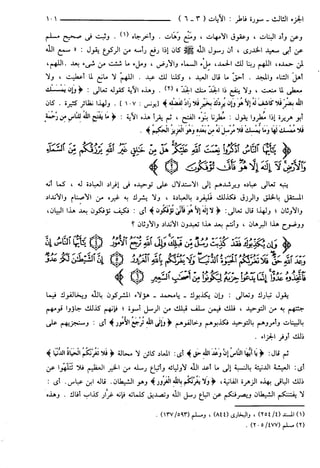 الجزء الثالث - سورة فاطر : الآيات ( ٣ - ٦ ) ١٠١
وعن وأد البنات ، وعقوق الأمهات ، ومنع وهات . وأخرجاه (١) . وثبت في صحيح مسلم
عن أبي سعيد الخدري ، أن رسول الله ﷺ كان إذا رفع رأسه من الركوع يقول : « سمع الله
لمن حمده، اللهم ربنا لك الحمد، ملء السماء والأرض ، وملء ما شئت من شيء بعد. اللهم،
أهل الثناء والمجد . أحق ما قال العبد ، وكلنا لك عبد . اللهم لا مانع لما أعطيت ، ولا
معطي لما منعت ، ولا ينفع ذا الجد منك الجد » (٢) . وهذه الآية كقوله تعالى : ﴿ وإن يمسسك
الله بضر فلا كاشف له إلا هو وإن يردك بخير فلا راد لفضله ﴾ [ يونس : ١٠٧ ] . ولهذا نظائر كثيرة . كان
أبو هريرة إذا مطروا يقول : مطرنا بنوء الفتح ، ثم يقرأ هذه الآية : ﴿ ما يفتح الله للناس من رحمة
فلا ممسك لها وما يمسك فلا مرسل له من بعده وهو العزيز الحكيم ﴾ .
يأيها الناس اذكروا نعمت الله عليكم هل من خالق غير الله يرزقكم من السماء
والأرض لا إله إلا هو فأنى تؤفكون
ينبه تعالى عباده ويرشدهم إلى الاستدلال على توحيده في إفراد العبادة له ، كما أنه
المستقل بالخلق والرزق فكذلك فليفرد بالعبادة ، ولا يشرك به غيره من الأصنام والأنداد
والأوثان ؛ ولهذا قال تعالى : ﴿ لا إله إلا هو فأنى تؤفكون ﴾ أي : فكيف تؤفكون بعد هذا البيان،
ووضوح هذا البرهان ، وأنتم بعد هذا تعبدون الأنداد والأوثان ؟
وإن يكذبوك فقد كذبت رسل من قبلك وإلى الله ترجع الأمور يأيها الناس إن
وعد الله حق فلا تغرنكم الحياة الدنيا ولا يغرنكم بالله الغرور إن الشيطان لكم
عدو فاتخذوه عدوا إنما يدعو حزبه ليكونوا من أصحاب السعير
يقول تبارك وتعالى : وإن يكذبوك - يا محمد - هؤلاء المشركون بالله ويخالفوك فيما
جئتهم به من التوحيد ، فلك فيمن سلف قبلك من الرسل أسوة ؛ فإنهم كذلك جاؤوا قومهم
بالبينات وأمروهم بالتوحيد فكذبوهم وخالفوهم ﴿ وإلى الله ترجع الأمور ﴾ أي : وسنجزيهم على
ذلك أوفر الجزاء .
ثم قال: ﴿ يأيها الناس إن وعد الله حق ﴾ أي: المعاد كائن لا محالة ﴿ فلا تغرنكم الحياة الدنيا ﴾
أي: العيشة الدنيئة بالنسبة إلى ما أعد الله لأوليائه وأتباع رسله من الخير العظيم فلا تتلهوا عن
ذلك الباقي بهذه الزهرة الفانية، ﴿ ولا يغرنكم بالله الغرور ﴾ وهو الشيطان. قاله ابن عباس . أي :
لا يفتننكم الشيطان ويصرفنكم عن اتباع رسل الله وتصديق كلماته فإنه غرار كذاب أفاك . وهذه
(١) المسند (٤/ ٢٥٤) ، والبخاري (٨٤٤) ، ومسلم (٥٩٣/ ١٣٧) .
(٢) مسلم (٤٧٧/ ٢٠٥) .